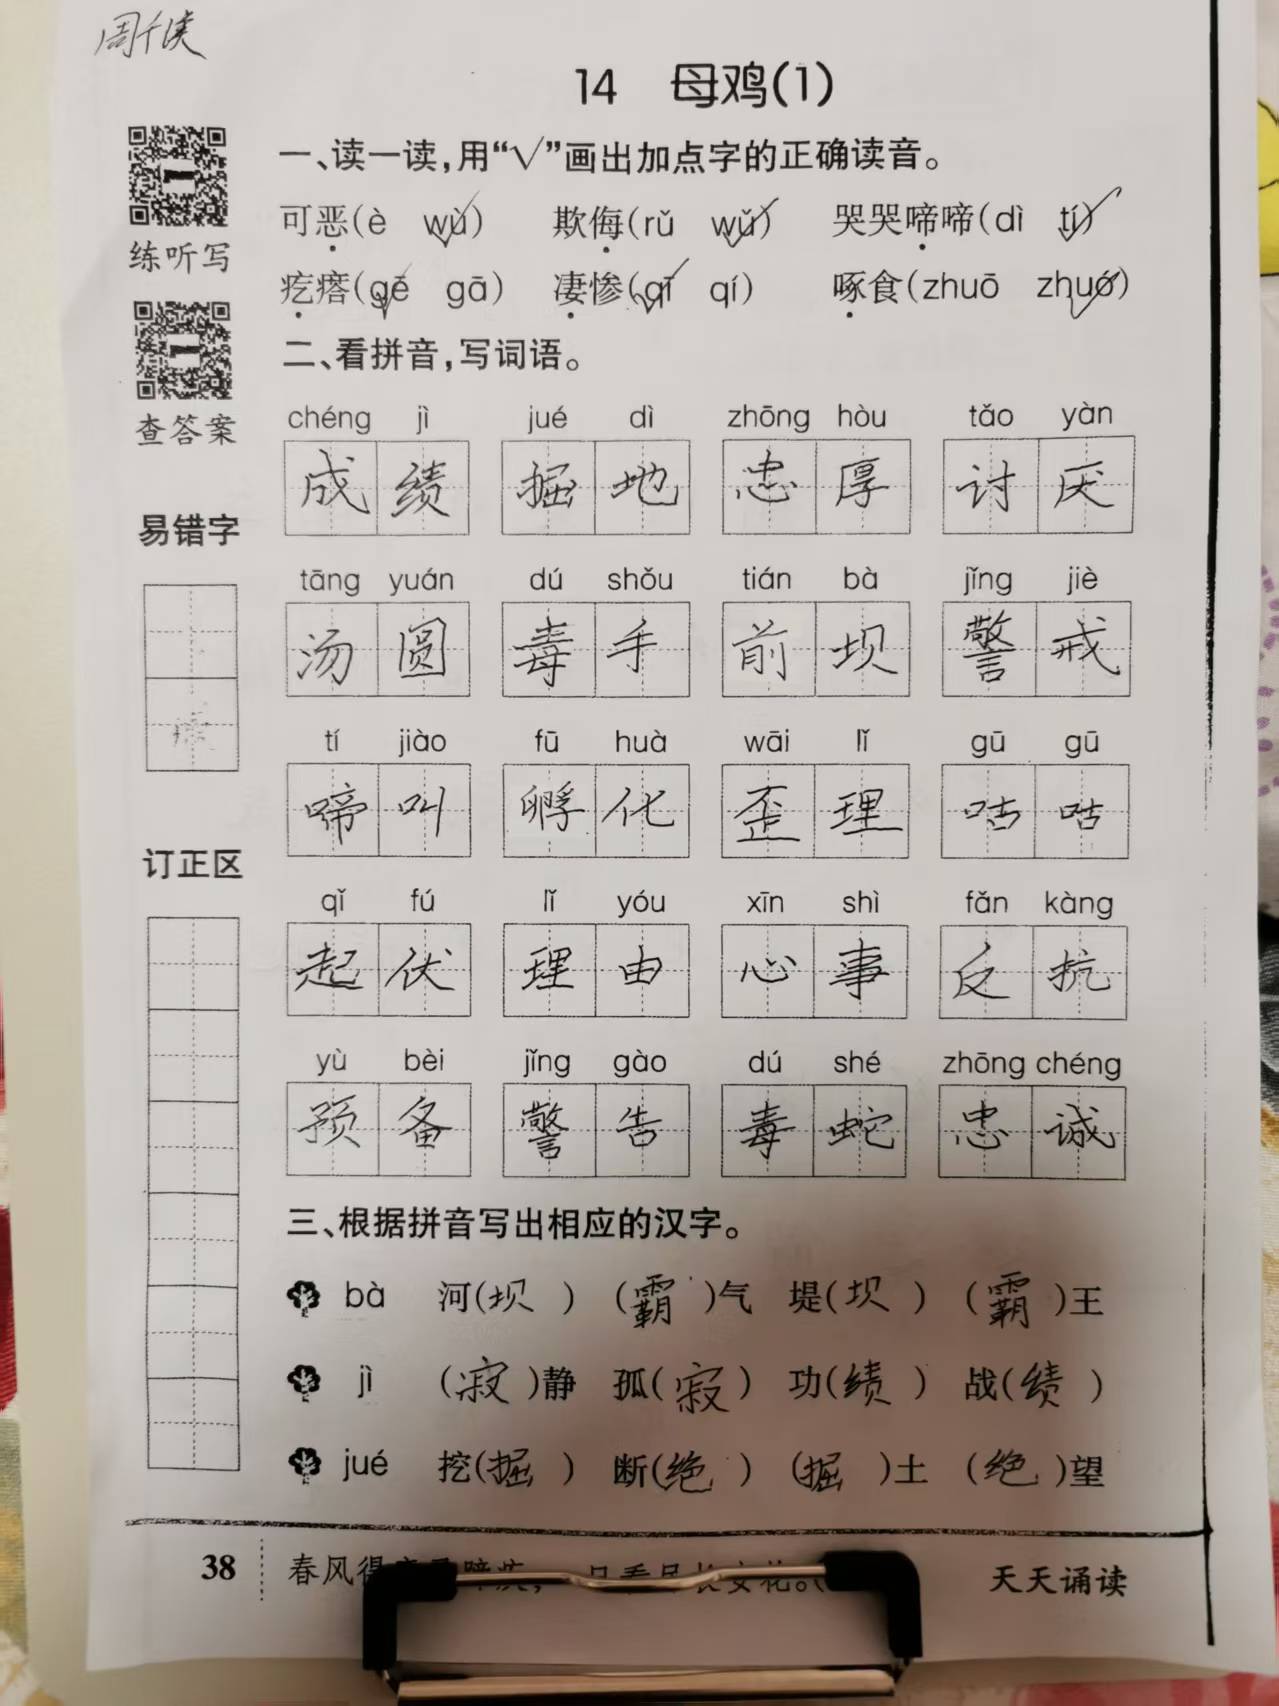 周千侯
14 母鸡(1)
一、读一读,用“√”画出加点字的正确读音。
可恶(è wù) 欺侮(rǔ wǔ) 哭哭啼啼(dì tí)
练听写
疙瘩(gē gā) 凄惨(qī qí) 啄食(zhuō zhuó)
二、看拼音,写词语。
查答案
chéng jì jué dì zhōng hòu tǎo yàn
成绩 掘地 忠厚 讨厌
易错字
tāng yuán dú shǒu tián bà jǐng jiè
汤圆 毒手 前坝 警戒
tí jiào fū huà wāi lǐ gū gū
啼叫 孵化 歪理 咕咕
订正区
qǐ fú lǐ yóu xīn shì fǎn kàng
起伏 理由 心事 反抗
yù bèi jǐng gào dú shé zhōng chéng
预备 警告 毒蛇 忠诚
三、根据拼音写出相应的汉字。
bà 河(坝) (霸)气 堤(坝) (霸)王
jì (寂)静 孤(寂) 功(绩) 战(绩)
jué 挖(掘) 断(绝) (掘)土 (绝)望
38 春风得 天天诵读